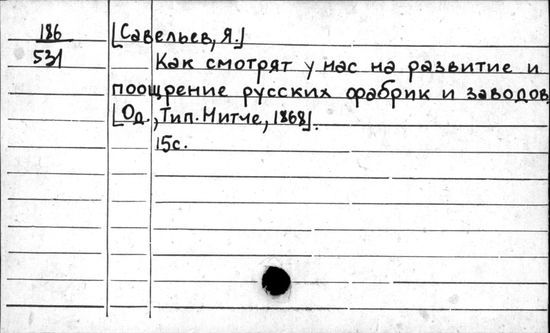 186
531
[Савельев, Я.]
Как смотрят у нас на развитие и
поощрение русских фабрик и заводов
[Од., Тип. Нитче, 1868].
15с.